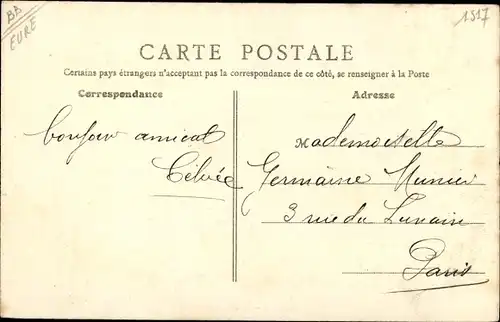 BB
EURE
1517
CARTE POSTALE
Certains pays étrangers n'acceptant pas la correspondance de ce côté, se renseigner à la Poste
Correspondance
Adresse
bonjour amical
Mademoiselle
Germaine Munier
3 rue du Lunain
Paris